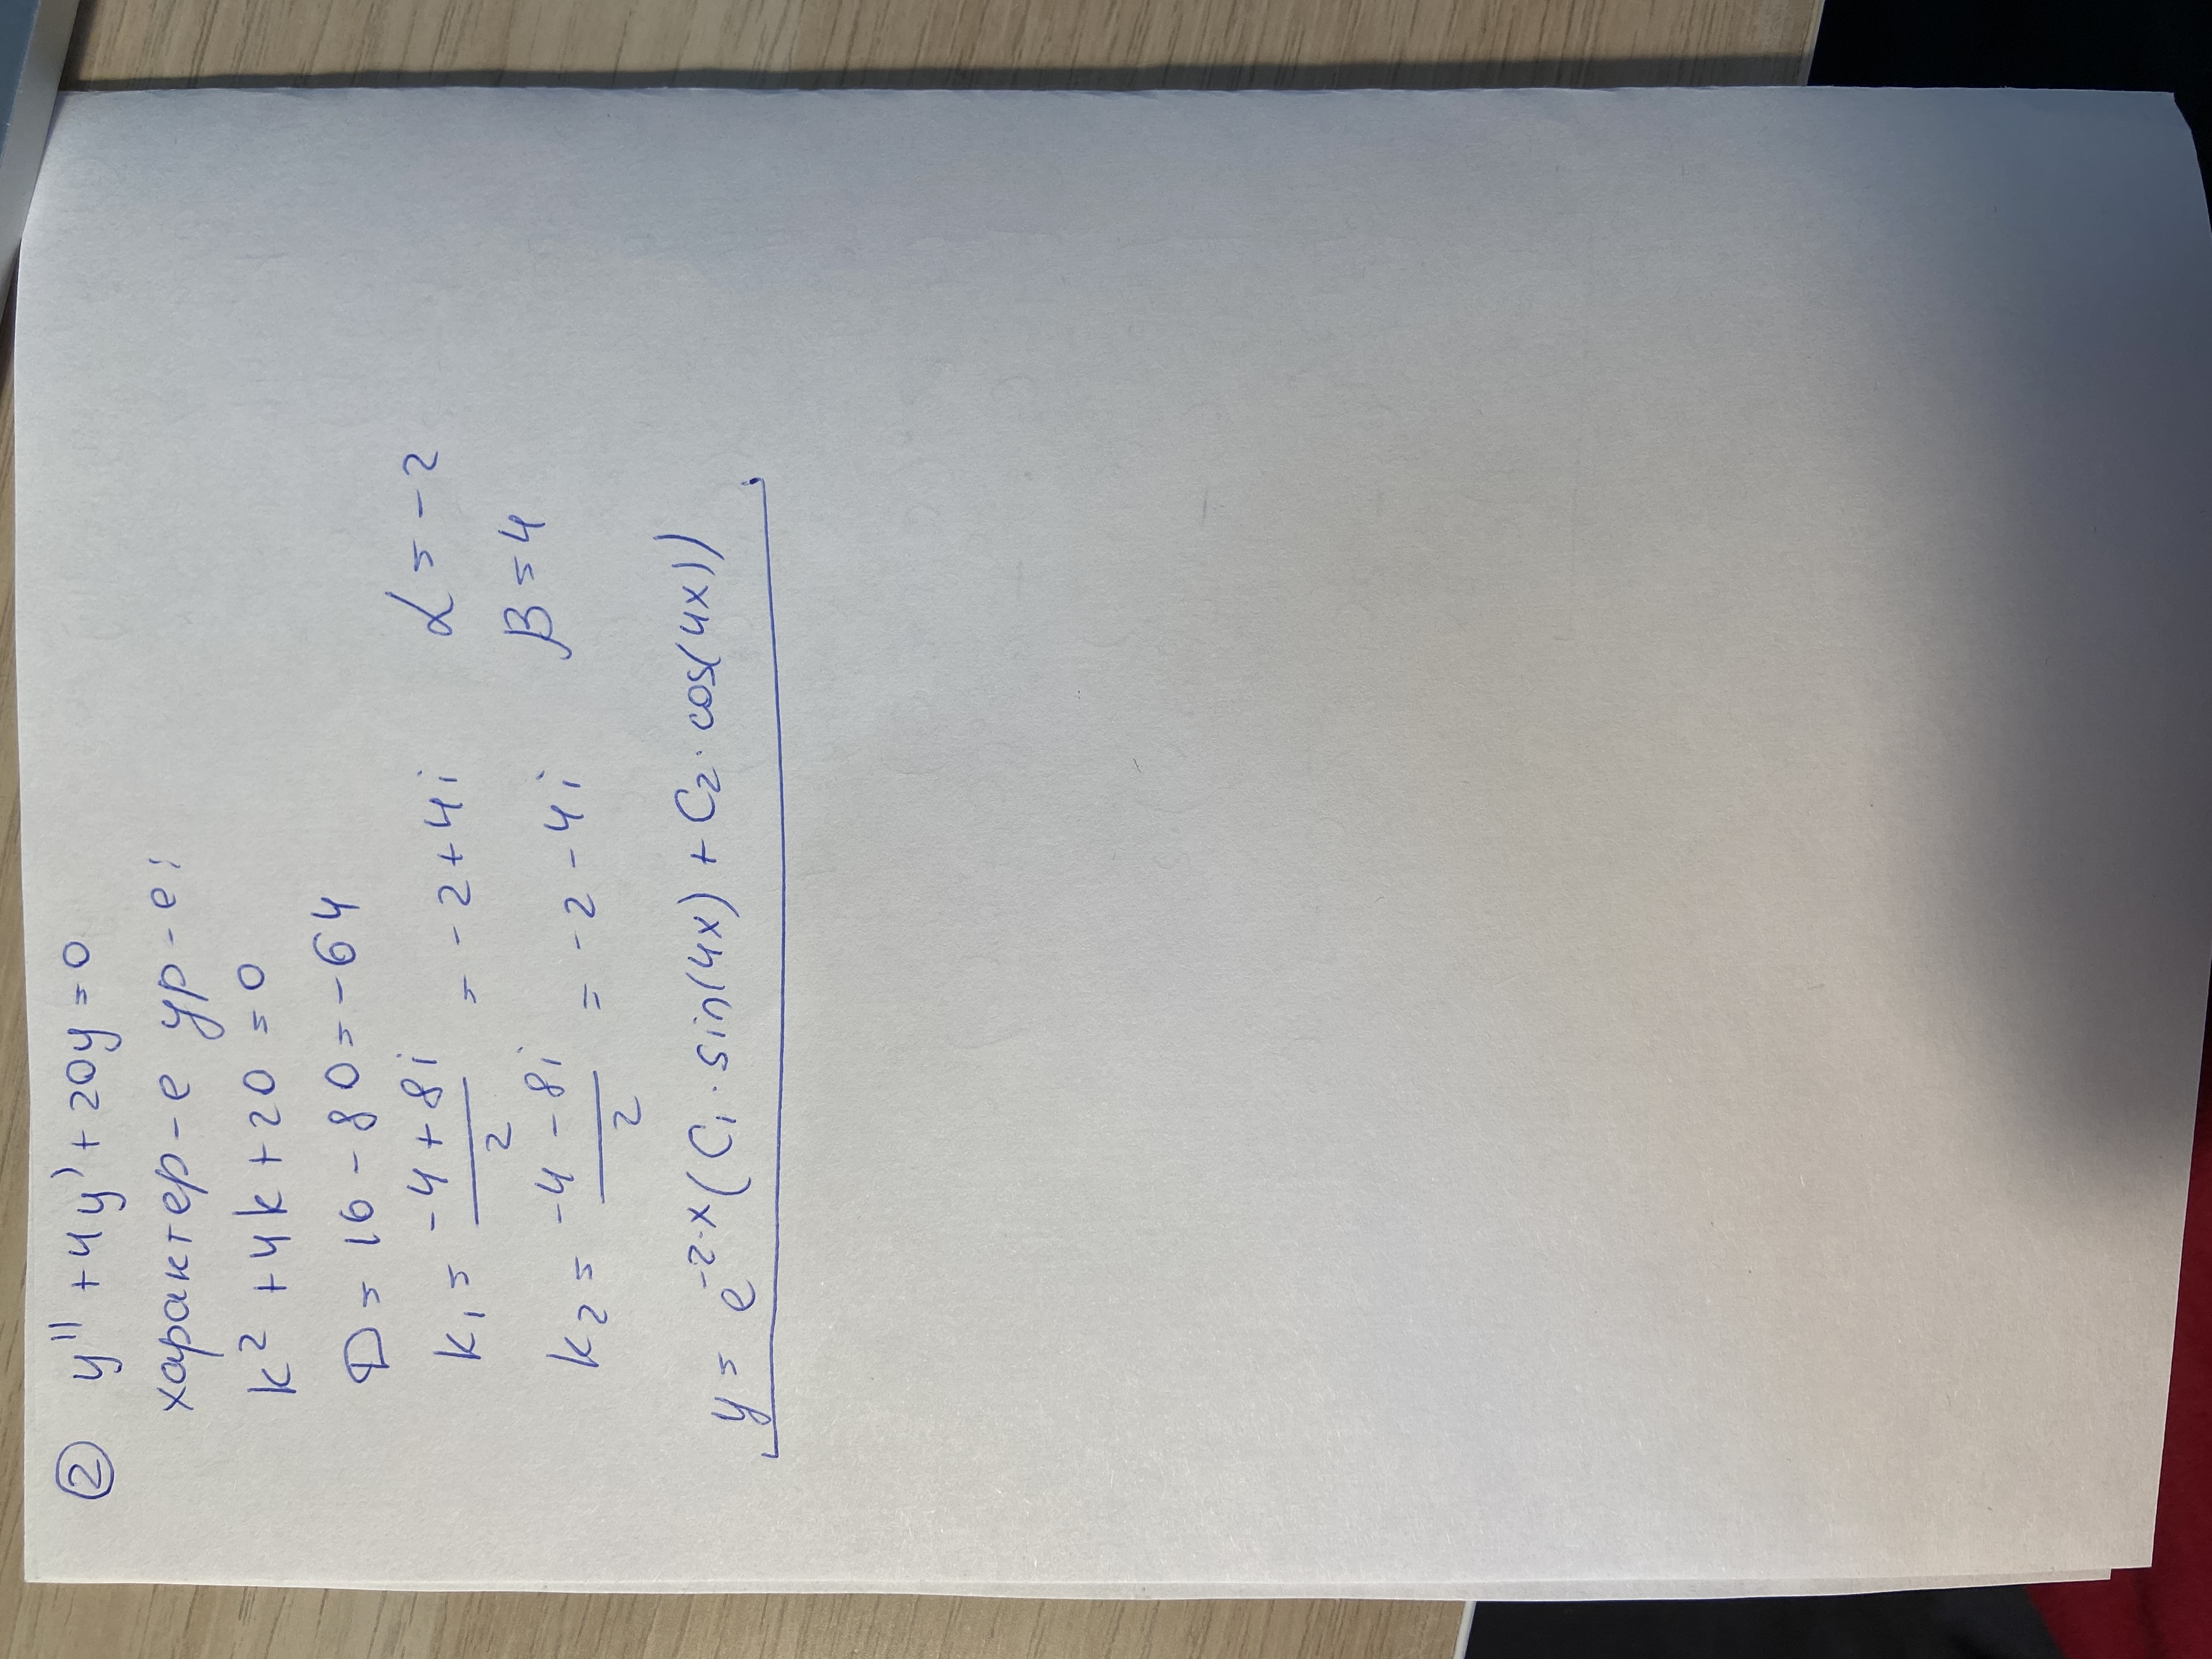 ② y'' + 4y' + 20y = 0
характер-е ур-е:
k² + 4k + 20 = 0
D = 16 - 80 = -64
k₁ = (-4 + 8i)/2 = -2 + 4i α = -2
k₂ = (-4 - 8i)/2 = -2 - 4i β = 4
y = e^(-2·x) (C₁ · sin(4x) + C₂ · cos(4x))